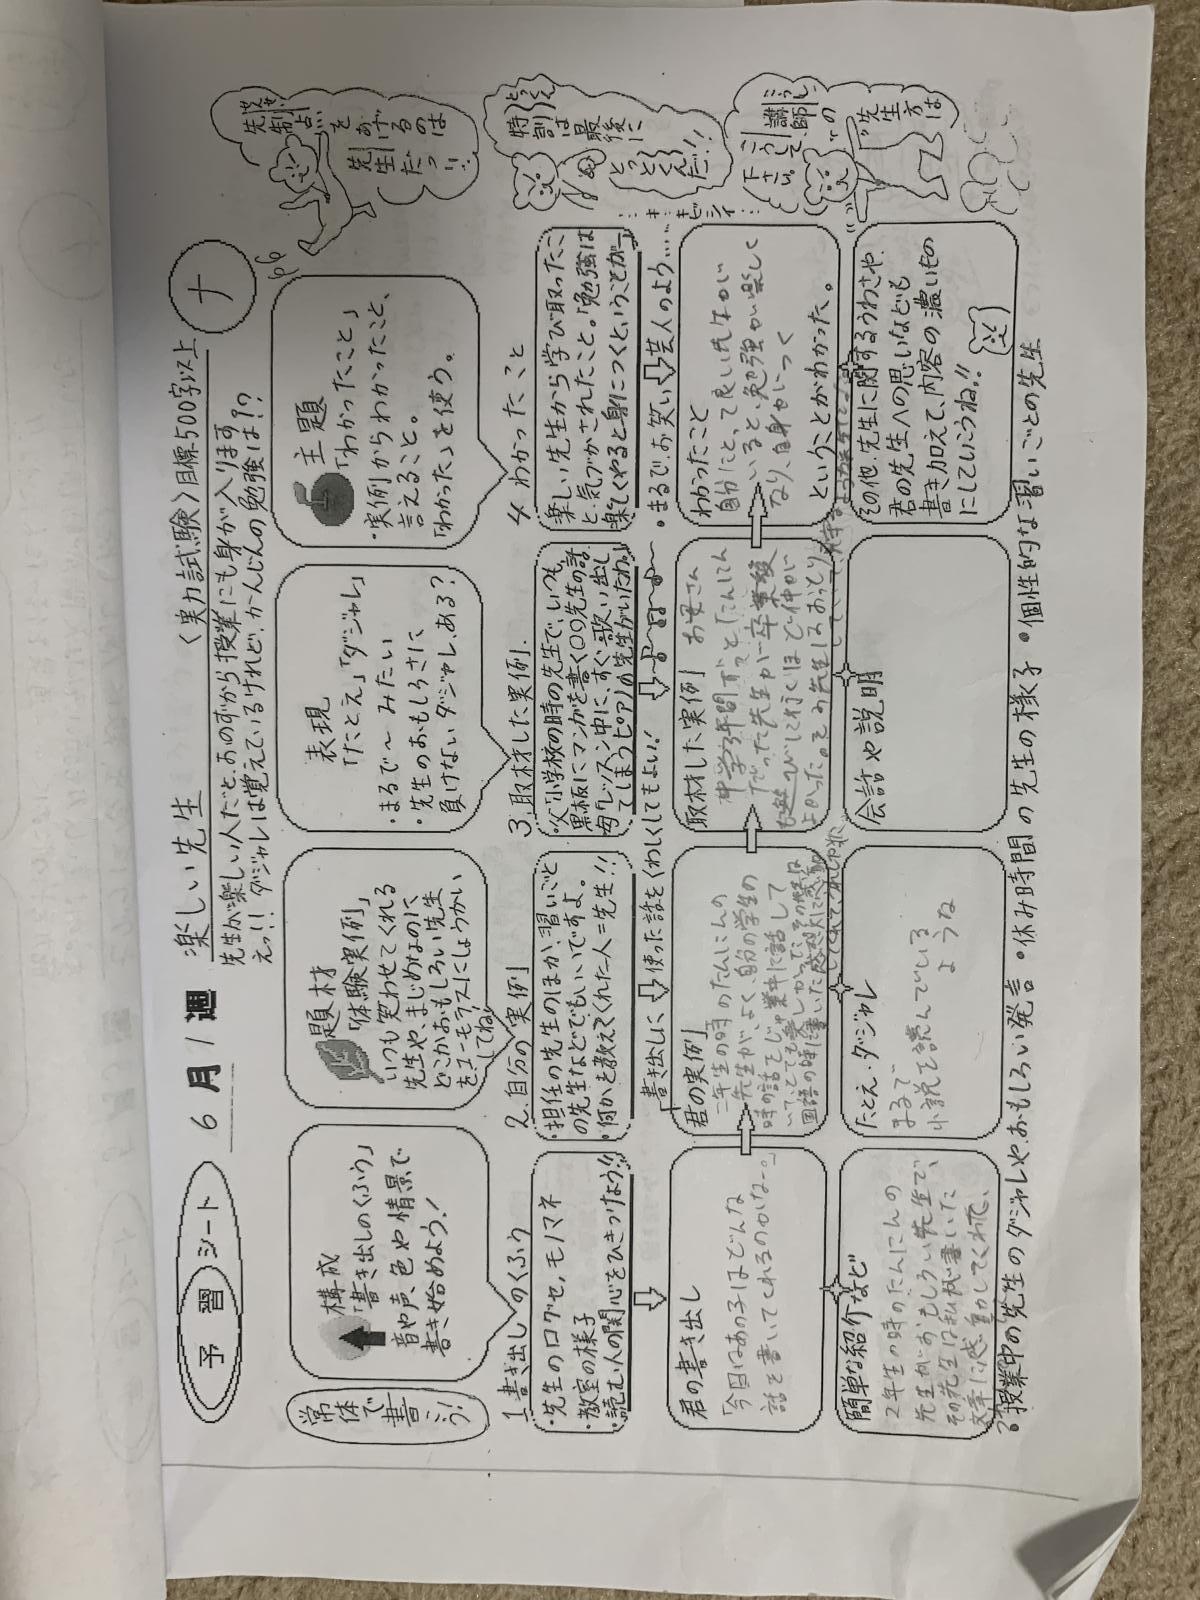 予習シート
6月1週
楽しい先生
〈実力試験〉目標500字以上
ナ
先生が楽しい人だと、おのずから授業にも身が入ります
えっ!!ダジャレは覚えているけれど、かんじんの勉強は!?
常体で書こう!
構成
「書き出しのくふう」
音や声、色や情景で
書き始めよう!
題材
「体験実例」
いつも笑わせてくれる
先生や、まじめなのに
どこかおもしろい先生
をユーモラスにしょうかい
してね
表現
「たとえ」「ダジャレ」
・まるで〜みたい
・先生のおもしろさに
負けないダジャレ、ある?
主題
「わかったこと」
・実例からわかったこと、
言えること。
「わかった」を使う。
先制点
をあげ
るのは
先生だっ!!
1 書き出しのくふう
・先生の口グセ、モノマネ
・教室の様子
・読む人の関心をひきつけよう!!
2.自分の実例
・担任の先生のほか、習いごと
の先生などでもいいですよ。
・何かを教えてくれた人=先生!!
3.取材した実例
・父「小学校の時の先生で、いつも
黒板にマンガを書く〇〇先生の話
・母「レッスン中に、すぐ歌い出し
てしまうピアノの先生がいたわ。」
4 わかったこと
楽しい先生から学び取ったこ
と、気づかされたこと。「勉強は
楽しくやると身につくということが〜」
特訓
は最
後に
とっとくんだ!!
書き出しに
使った話をくわしくしてもよい!
・まるでお笑い
芸人のよう……
キビシイ
君の書き出し
「今日はあの子はどんな
話を書いてくれるのかな〜。」
君の実例
二年生の時のたんにんの
先生がよく、自分の学生の
時の話をじゅ業中に話して
いて、とても楽しかった。その先生は
国語の時に書いた感想文に感動
してくれて、うれしかった
取材した実例
お母さん
中学3年間ずっとたんにん
だった先生が一卒業後
も遊びに行くほど仲が
よかった。その先生はおっとり
わかったこと
自分にとって良い先生が
いると、勉強が楽しく
なり、自身がつく
ということがわかった。
講師
こうして
下さい。
の先生方は
簡単な紹介など
2年生の時のたんにんの
先生がおもしろい先生で、
その先生は私が書いた
文章に感動してくれて、
たとえ・ダジャレ
まるで、
小説を読んでいる
ような
会話や説明
その他、先生に関するうわさや、
君の先生への思いなども
書き加えて、内容の濃いもの
にしていこうね!!
・授業中の先生のダジャレや、おもしろい発言
・休み時間の先生の様子
・個性的な習いごとの先生